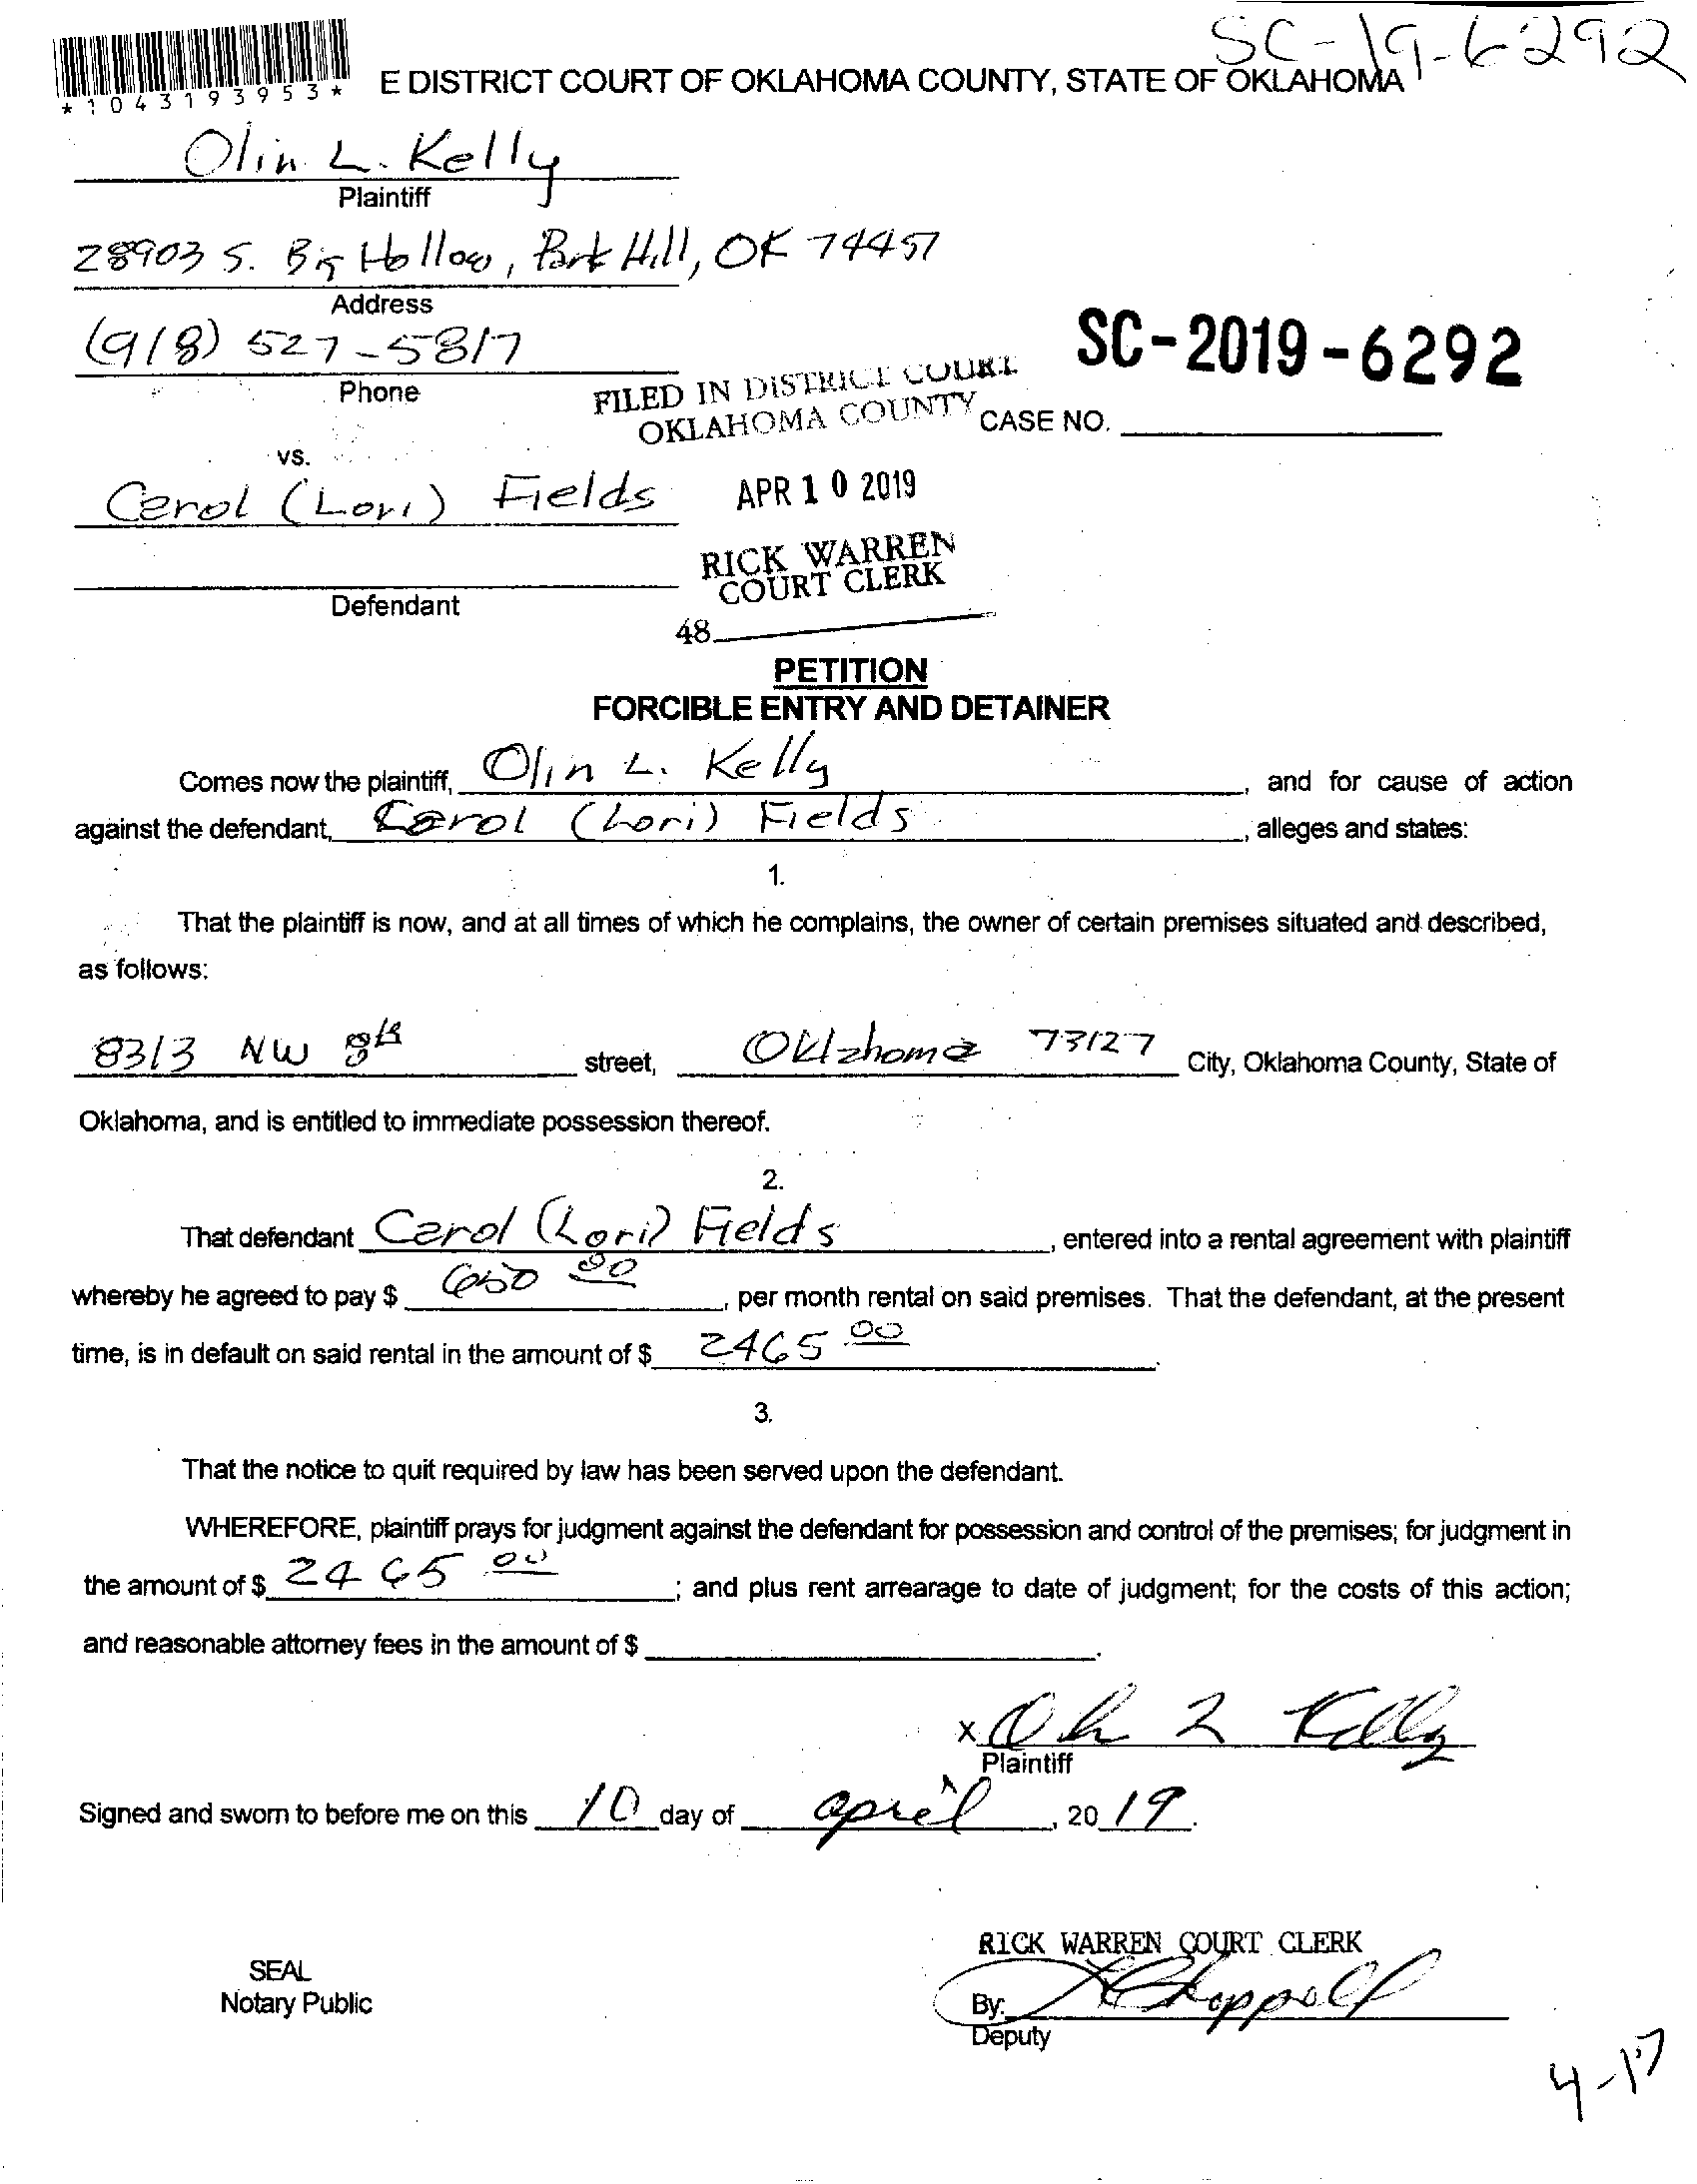 SC-19-6292
*1043193953*
E DISTRICT COURT OF OKLAHOMA COUNTY, STATE OF OKLAHOMA
Olin L. Kelly
Plaintiff
28903 S. Big Hollow, Park Hill, OK 74457
Address
(918) 527-5817
Phone
SC-2019-6292
FILED IN DISTRICT COURT
OKLAHOMA COUNTY
CASE NO.
vs.
Carol (Lori) Fields
APR 10 2019
RICK WARREN
COURT CLERK
Defendant
48
PETITION
FORCIBLE ENTRY AND DETAINER
Comes now the plaintiff, Olin L. Kelly, and for cause of action
against the defendant, Carol (Lori) Fields, alleges and states:
1.
That the plaintiff is now, and at all times of which he complains, the owner of certain premises situated and described,
as follows:
8313 NW 8th street, Oklahoma 73127 City, Oklahoma County, State of
Oklahoma, and is entitled to immediate possession thereof.
2.
That defendant Carol (Lori) Fields, entered into a rental agreement with plaintiff
whereby he agreed to pay $ 650 00, per month rental on said premises. That the defendant, at the present
time, is in default on said rental in the amount of $ 2465 00.
3.
That the notice to quit required by law has been served upon the defendant.
WHEREFORE, plaintiff prays for judgment against the defendant for possession and control of the premises; for judgment in
the amount of $ 2465 00; and plus rent arrearage to date of judgment; for the costs of this action;
and reasonable attorney fees in the amount of $ .
x Olin L Kelly
Plaintiff
Signed and sworn to before me on this 10 day of april, 20 19.
RICK WARREN COURT CLERK
SEAL
Notary Public
By:
Deputy
4-17